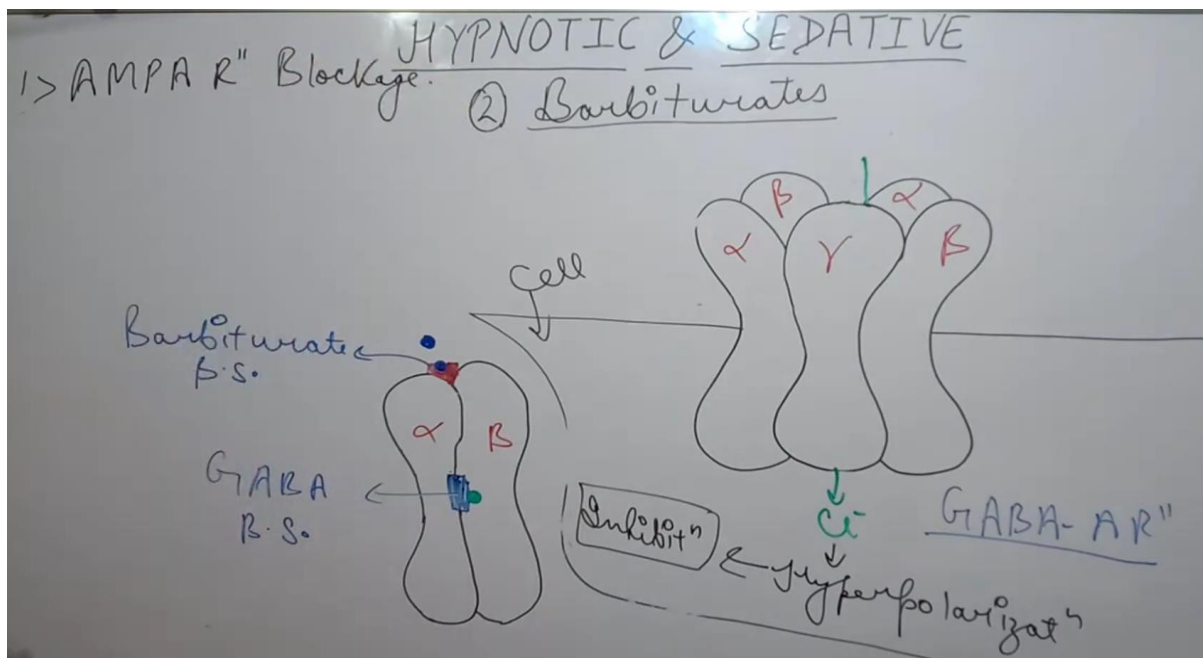 HYPNOTIC & SEDATIVE
1> AMPA R" Blockage.
② Barbiturates
β α
α γ β
Cell
Barbiturate
B.S.
α β
GABA
B.S.
Cl-
GABA-AR"
Hyperpolarizatn
Inhibitn